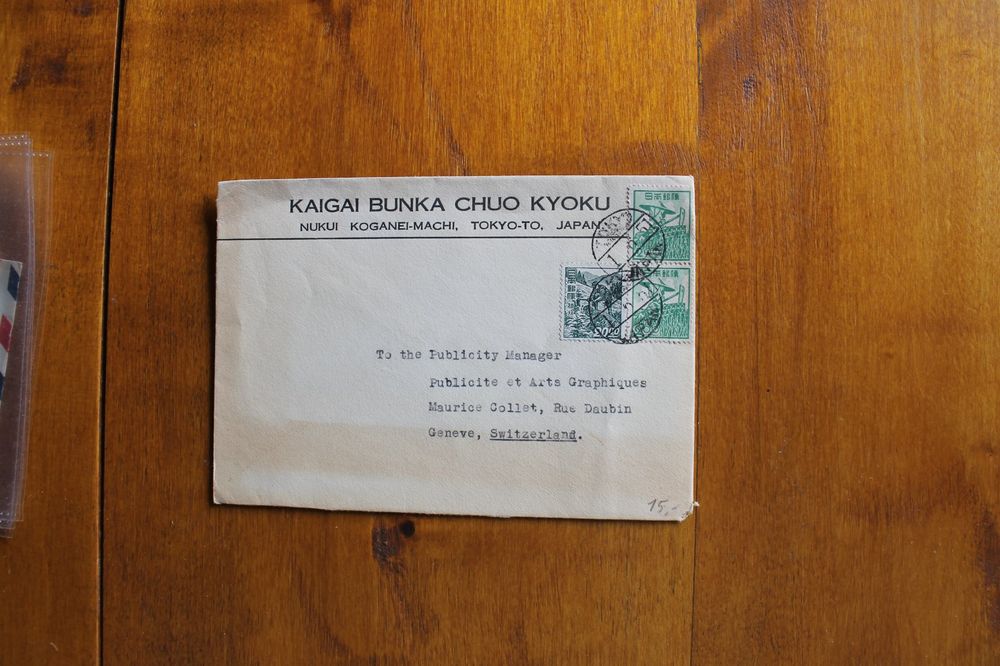 KAIGAI BUNKA CHUO KYOKU
NUKUI KOGANEI-MACHI, TOKYO-TO, JAPAN
日本郵便
日本郵便
日本郵便
To the Publicity Manager
Publicite et Arts Graphiques
Maurice Collet, Rue Daubin
Geneve, Switzerland.
15,-